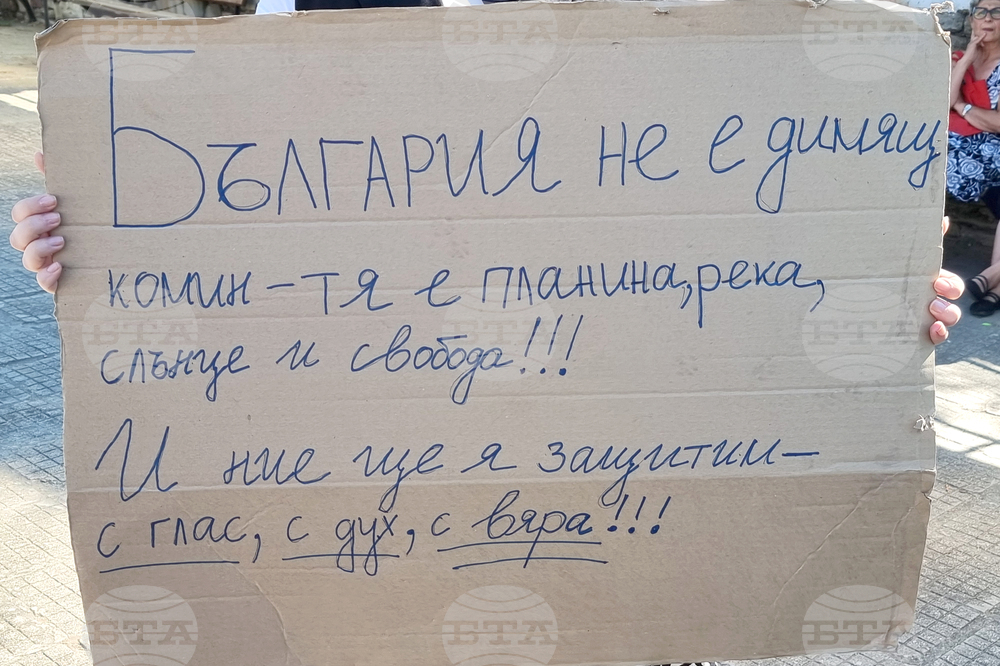 България не е димящ
комин – тя е планина, река,
слънце и свобода!!!
И ние ще я защитим –
с глас, с дух, с вяра!!!
БТА
БТА
БТА
БТА
БТА
БТА
БТА
БТА
БТА